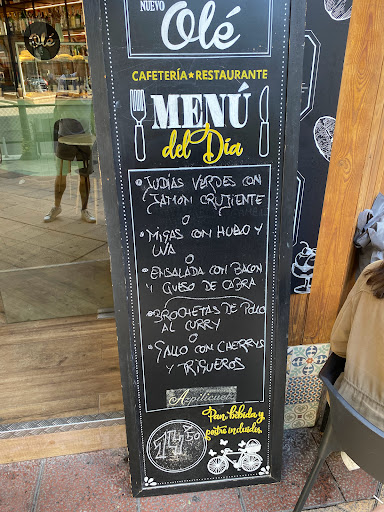 Olé
NUEVO
Olé
CAFETERÍA★RESTAURANTE
MENÚ
del Día
• JUDIAS VERDES CON
JAMON CRUJIENTE
O
• MIGAS CON HUEVO Y
UVA
O
• ENSALADA CON BACON
Y QUESO DE CABRA
• BROCHETAS DE POLLO
AL CURRY
O
• GALLO CON CHERRYS
Y TRIGUEROS
Azpilicueta
Pan, bebida y
postre incluidos